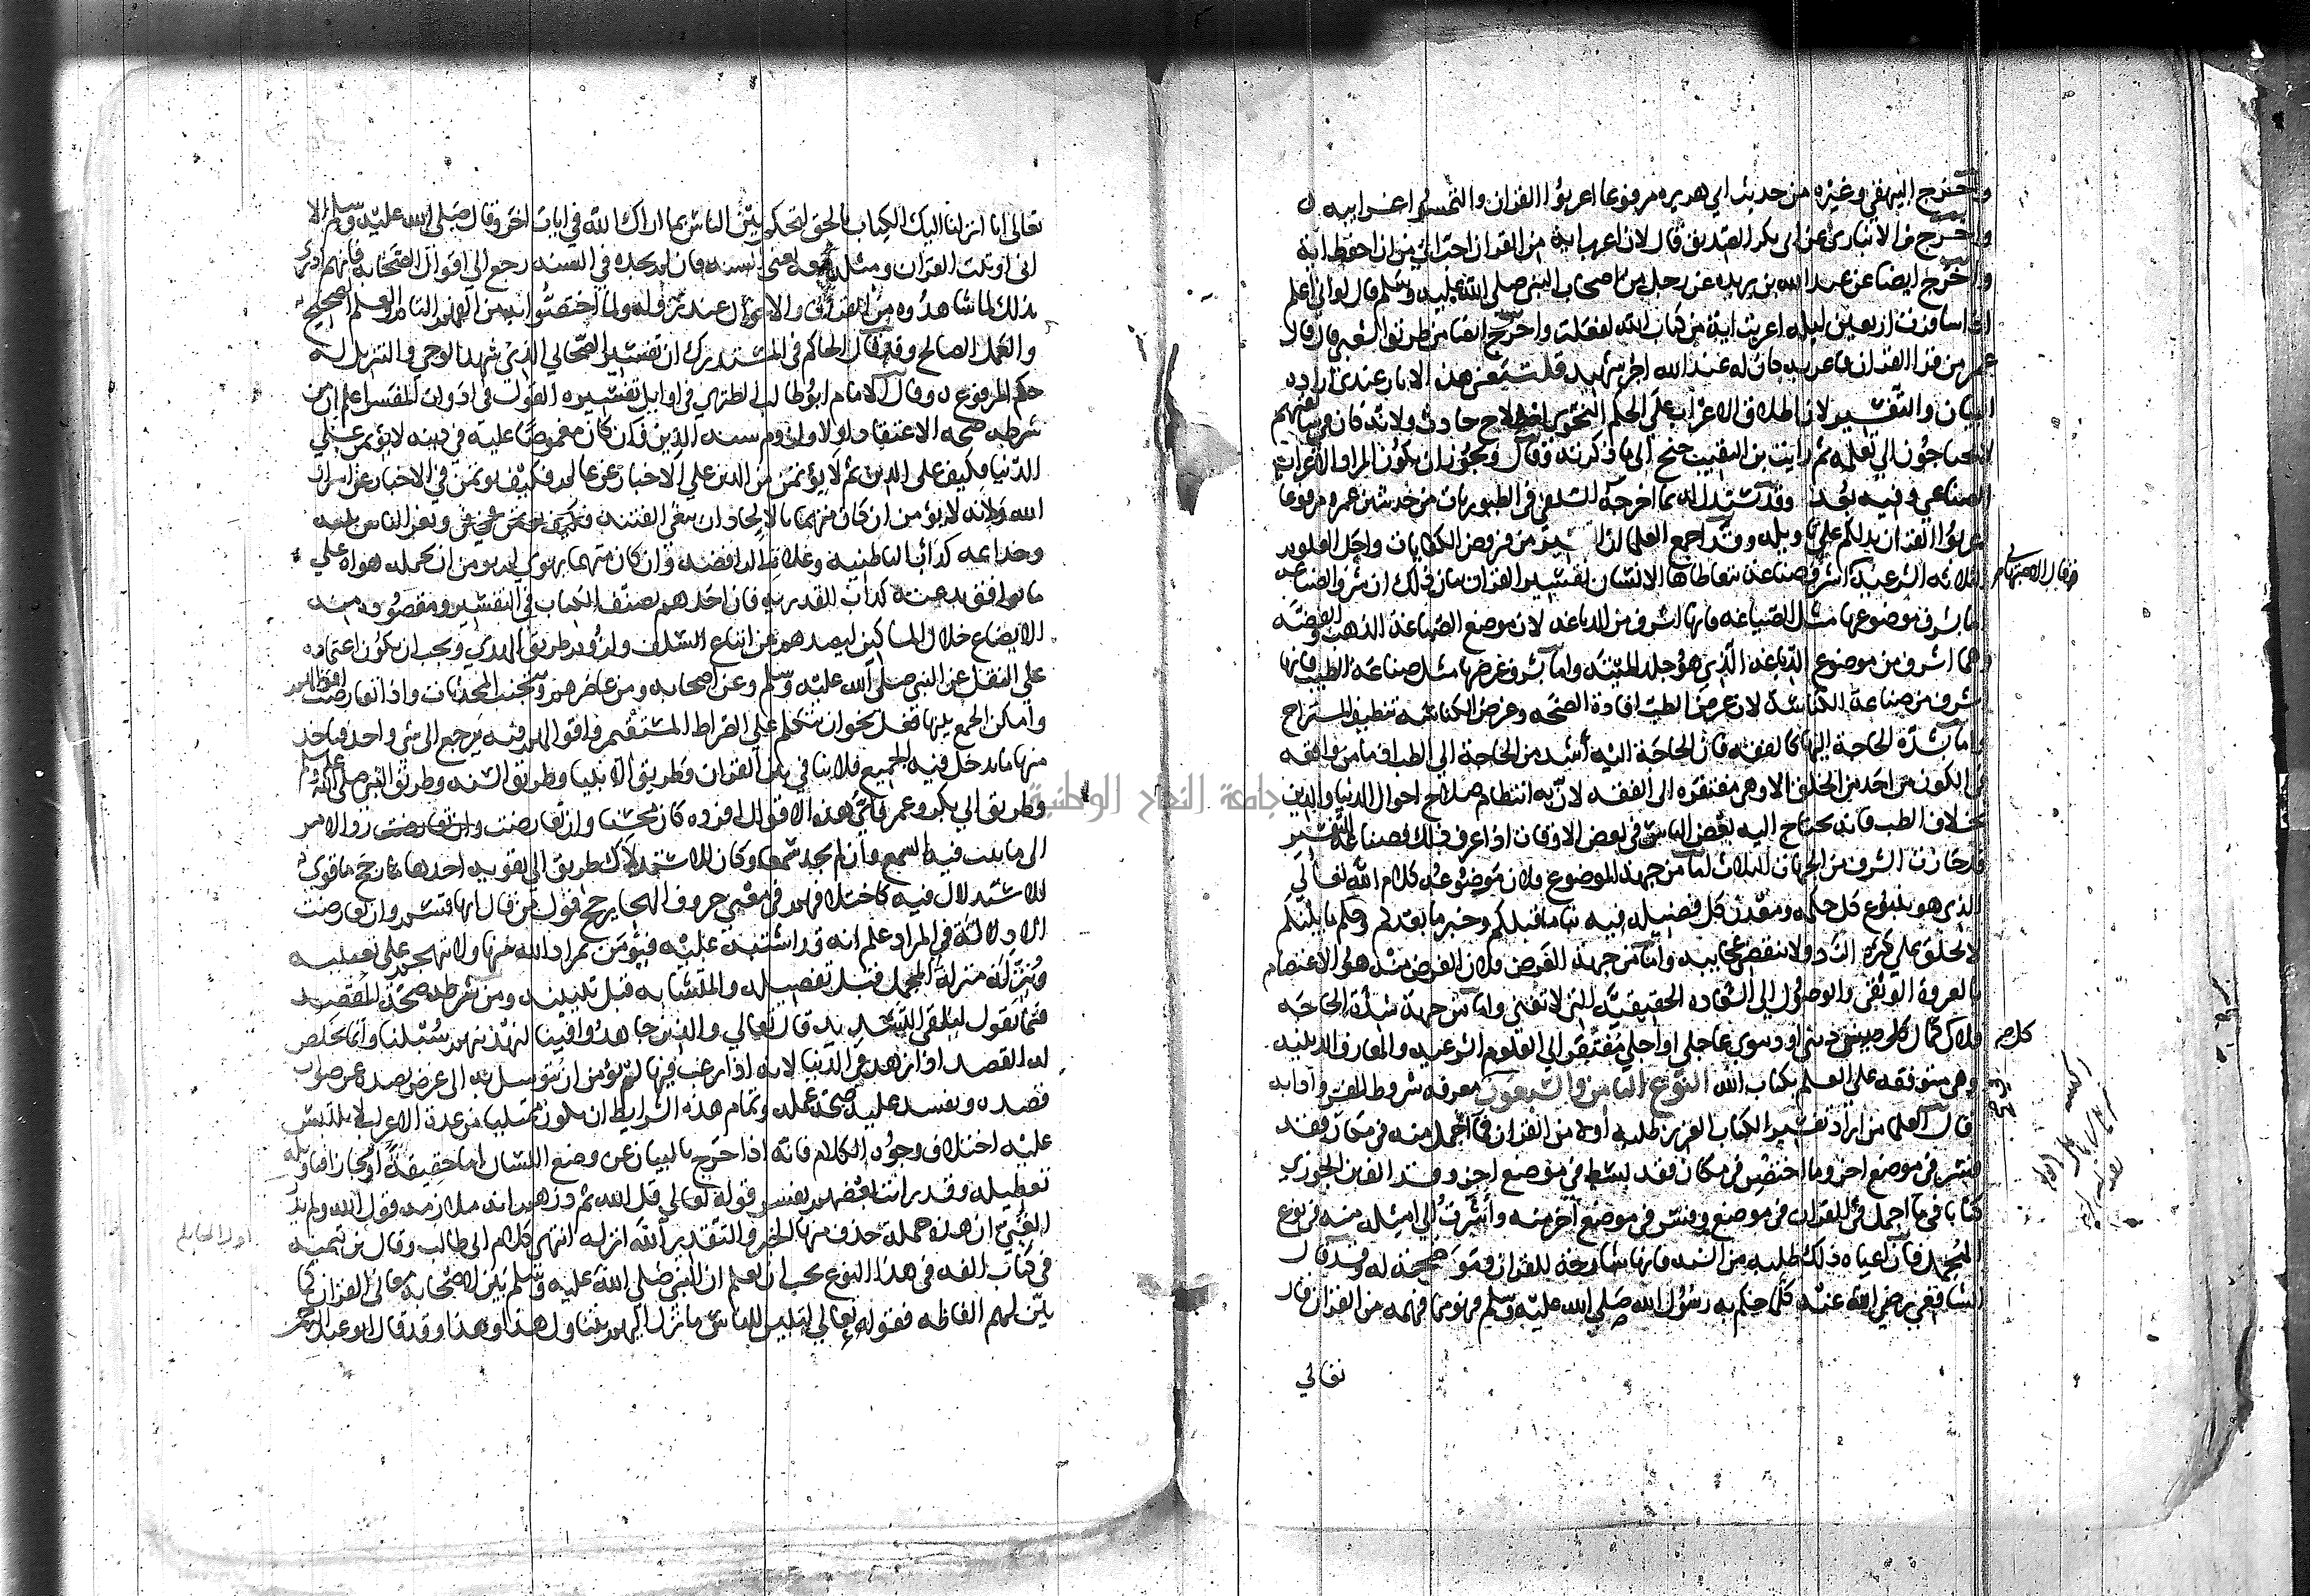 واخرج البيهقي وغيره من حديث ابي هريره مرفوعا اعربوا القران والتمسوا غرايبه
واخرج بن الانباري عن ابي بكر الصديق قال لان اعرب ايه من القران احب الي من ان احفظ ايه
واخرج ايضا عن عبد الله بن بريده عن رجل من اصحاب النبي صلى الله عليه وسلم قال لو اني اعلم
اذا سافرت اربعين ليله اعربت اية من كتاب الله لفعلت واخرج ايضا من طريق الشعبي قال قال
عمر من قرا القران فاعربه كان له عند الله اجر شهيد قلت معنى هذه الاثار عندي اراده
البيان والتفسير لان اطلاق الاعراب على الحكم النحوي اصطلاح حادث ولانه كان في سليقتهم
لا يحتاجون الى تعلمه ثم رايت بن النقيب جنح الى ما ذكرته وقال ويجوز ان يكون المراد الاعراب
الصناعي وفيه بعد وقد يستدل له بما اخرجه السلفي في الطيوريات من حديث بن عمر مرفوعا
اعربوا القران يدلكم على تاويله وقد اجمع العلما ان التفسير من فروض الكفايات واجل العلوم
الثلاثه الشرعيه اشرف صناعة يتعاطاها الانسان تفسير القران بيان ذلك ان شرف الصناعه
اما بشرف موضوعها مثل الصياغه فانها اشرف من الدباغه لان موضع الصياغة الذهب والفضه
وهما اشرف من موضوع الدباغه الذي هو جلد الميته واما بشرف غرضها مثل صناعة الطب فانها
اشرف من صناعة الكناسة لان غرض الطب افادة الصحه وغرض الكناسه تنظيف المستراح
واما بشدة الحاجة اليها كالفقه فان الحاجة اليه اشد من الحاجة الى الطب اذ ما من واقعه
في الكون من احد من الخلق الا وهي مفتقره الى الفقه لان به انتظام صلاح احوال الدنيا والدين
بخلاف الطب فانه يحتاج اليه بعض الناس في بعض الاوقات اذا عرف ذلك فصناعة التفسير
قد حازت الشرف من الجهات الثلاث اما من جهة الموضوع فلان موضوعه كلام الله تعالى
الذي هو ينبوع كل حكمه ومعدن كل فضيله فيه نبا ما قبلكم وخبر ما بعدكم وحكم ما بينكم
لا يخلق على كثرة الرد ولا تنقضي عجايبه واما من جهة الغرض فلان الغرض منه هو الاعتصام
بالعروة الوثقى والوصول الى السعاده الحقيقية التي لا تفنى واما من جهة شدة الحاجه
فلان كل كمال ديني او دنيوي عاجلي او اجلي مفتقر الى العلوم الشرعيه والمعارف الدينيه
وهي متوقفه على العلم بكتاب الله النوع الثامن والسبعون معرفه شروط المفسر وادابه
قال العلما من اراد تفسير الكتاب العزيز طلبه اولا من القران فما اجمل منه في مكان فقد
فسر في موضع اخر وما اختصر في مكان فقد بسط في موضع اخر وقد الف بن الجوزي
كتابا في ما اجمل في القران في موضع وفسر في موضع آخر منه واشرت الى امثله منه في نوع
المجمل فان اعياه ذلك طلبه من السنه فانها شارحة للقران وموضحة له وقد قال
الشافعي رضي الله عنه كلما حكم به رسول الله صلى الله عليه وسلم فهو مما فهمه من القران قال
تعالى
تعالى انا انزلنا اليك الكتاب بالحق لتحكم بين الناس بما اراك الله في ايات اخر وقال صلى الله عليه وسلم الا
اني اوتيت القران ومثله معه يعني السنه فان لم يجده في السنه رجع الى اقوال الصحابه فانهم ادرى
بذلك لما شاهدوه من القراين والاحوال عند نزوله ولما اختصوا به من الفهم التام والعلم الصحيح
والعمل الصالح وقد قال الحاكم في المستدرك ان تفسير الصحابي الذي شهد الوحي والتنزيل له
حكم المرفوع وقال الامام ابو طالب الطبري في اوايل تفسيره القول في ادوات المفسر اعلم ان من
شرطه صحه الاعتقاد اولا ولزوم سنة الدين فان من كان مغموصا عليه في دينه لا يؤتمن على
الدنيا فكيف على الدين ثم لا يؤتمن من الدين على الاخبار عن عالم فكيف يوتمن في الاخبار عن اسرار
الله ولانه لا يؤمن ان كان متهما بالالحاد ان يبغي الفتنه ويغر الناس بليه
وخداعه كداب الباطنيه وغلاة الرافضه وان كان متهما بهوى لم يومن ان يحمله هواه على
ما يوافق بدعته كداب القدريه فان احدهم يصنف الكتاب في التفسير ومقصوده منه
الايضاع خلال المساكين ليصدهم عن اتباع السلف ولزوم طريق الهدى ويجب ان يكون اعتماده
على النقل عن النبي صلى الله عليه وسلم وعن اصحابه ومن عاصرهم ويتجنب المحدثات واذا تعارضت اقوالهم
وامكن الجمع بينها فعل نحو ان يتكلم على الصراط المستقيم واقوالهم فيه يرجع الى شي واحد فياخذ
منها ما يدخل فيه الجميع فلا تنافي بين القران وطريق الانبيا وطريق السنه وطريق النبي صلى الله عليه وسلم
وطريق ابي بكر وعمر فاي هذه الاقوال افرده كان محسنا وان تعارضت رد الامر
الى ما ثبت فيه السمع وان لم يجد سمعا وكان للاستدلال طريق الى تقويه احدها رجح ما قوي
الاستدلال فيه كاختلافهم في معنى حروف الهجا يرجح قول من قال انها قسم وان تعارضت
الادلة في المراد علم انه قد اشتبه عليه فيؤمن بمراد الله منها ولا يتهجم على تعيينه
وينزله منزلة المجمل قبل تفصيله والمتشابه قبل تبيينه ومن شرطه صحة المقصد
فيما يقول ليلقى التسديد قال تعالى والذين جاهدوا فينا لنهدينهم سبلنا وانما يخلص
له القصد اذا زهد في الدنيا لانه اذا رغب فيها لم يؤمن ان يتوسل به الى غرض يصده عن صواب
قصده ويفسد عليه صحة عمله وتمام هذه الشرايط ان يكون ممتليا من عدة الاعراب لا يلتبس
عليه اختلاف وجوه الكلام فانه اذا خرج بالبيان عن وضع اللسان اما حقيقة او مجازا فتاويله
تعطيله وقد رايت بعضهم يفسر قوله تعالى قل الله ثم ذرهم انه ملازمه قول الله ولم يدر
الغبي ان هذه جملة حذف منها الخبر والتقدير الله انزله انتهى كلام ابي طالب وقال بن تيميه
في كتاب الفه في هذا النوع يجب ان يعلم ان النبي صلى الله عليه وسلم بين لاصحابه معاني القران كما
بين لهم الفاظه فقوله تعالى لتبين للناس ما نزل اليهم يتناول هذا وهذا وقد قال ابو عبد الرحمن
جامعة النجاح الوطنية